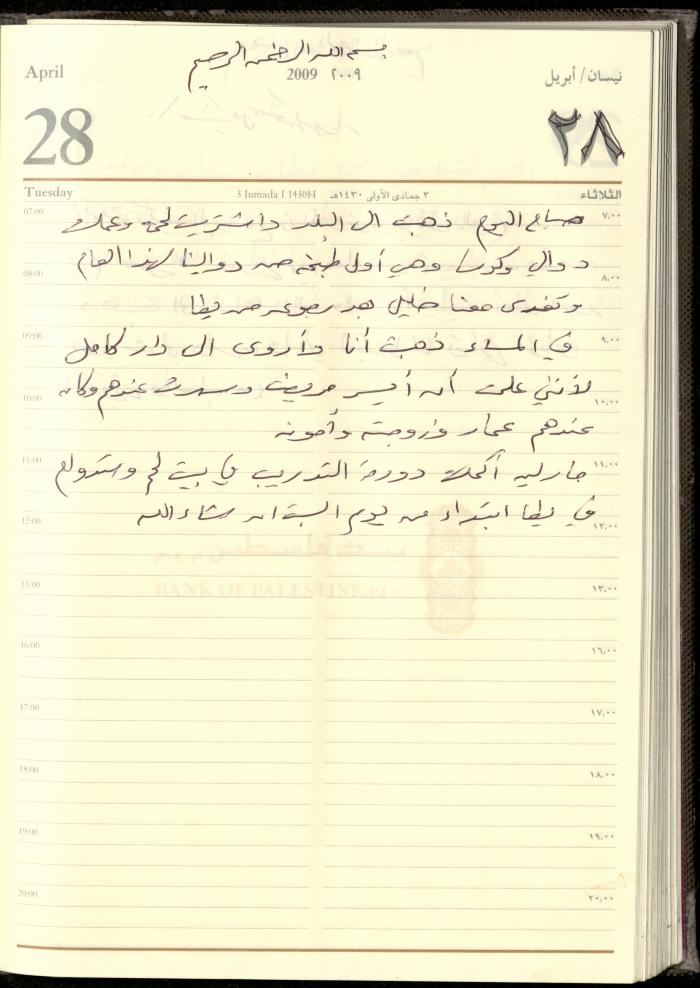 بسم الله الرحمن الرحيم
April 2009 ٢٠٠٩ نيسان/أبريل
28 ٢٨
Tuesday 3 Jumada I 1430H ٣ جمادى الأولى ١٤٣٠هـ الثلاثاء
07:00 صباح اليوم ذهبت الى البلد واشتريت لحمة وعملت ٧,٠٠
دوالي وكوسا وهي أول طبخة من دوالينا لهذا العام
08:00 ٨,٠٠
وتغدى معنا خليل بعد رجوعه من يطا
09:00 في المساء ذهبت أنا وأروى الى دار كامل ٩,٠٠
لأنني علمت أن أيسر مريض وسهرت عندهم وكان
10:00 ١٠,٠٠
عندهم عمار وزوجته وأخوته
11:00 أكملت دورة التدريب في بيت لحم وستداوم ١١,٠٠
في يطا ابتداء من يوم السبت ان شاء الله
12:00 ١٢,٠٠
BANK OF PALESTINE PLC
13:00 ١٣,٠٠
16:00 ١٦,٠٠
17:00 ١٧,٠٠
18:00 ١٨,٠٠
19:00 ١٩,٠٠
20:00 ٢٠,٠٠